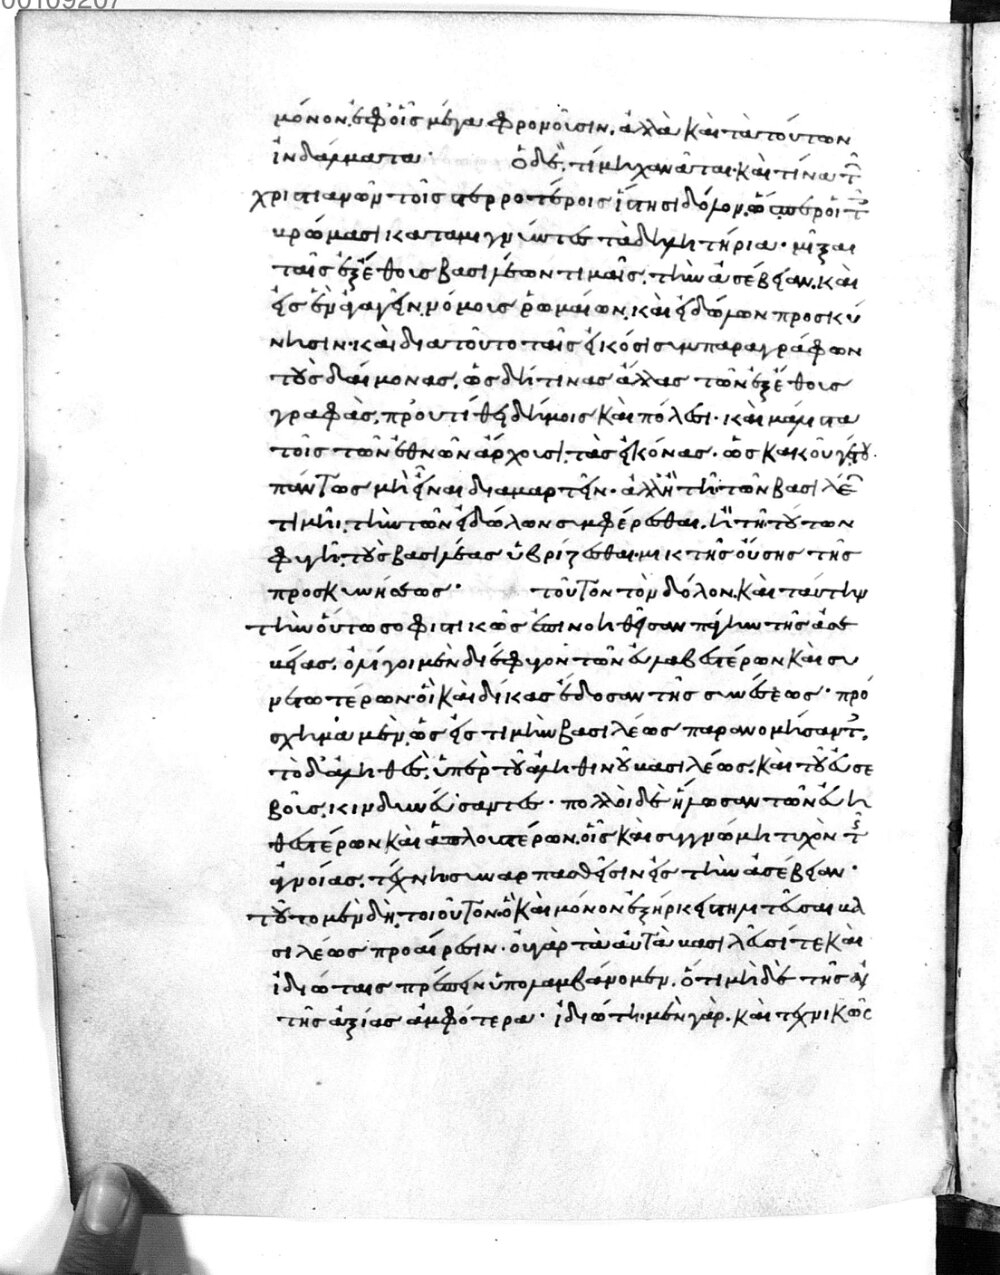 00109207
μόνον, ἐφ' οἷς μέγα φρονοῦσιν, ἀλλὰ καὶ τὰ τούτων
ἰνδάλματα· ὁ δὲ, τί μηχανᾶται καὶ τίνα τ
χριστιανῶν τοῖς στερροτέροις ἵστησι δόλον, ὥσπερ οἱ τ
βρώμασι καταμιγνύντες τὰ δηλητήρια· μῖξαι
ταῖς ἐξ ἔθους βασιλέων τιμαῖς, τὴν ἀσέβειαν, καὶ
εἰς ἓν ἀγαγεῖν, νόμους ῥωμαίων, καὶ εἰδώλων προσκύ
νησιν· καὶ διατοῦτο ταῖς εἰκόσι συμπαραγράφων
τοὺς δαίμονας, ὡς δή τινας ἄλλας τῶν ἐξ ἔθους
γραφὰς, προυτίθει δήμοις καὶ πόλεσι· καὶ μάλιστα
τοῖς τῶν ἐθνῶν ἄρχουσι, τὰς εἰκόνας· ὡς κακοῦ γέ του
πάντως μὴ εἶναι διαμαρτεῖν· ἀλλ' ἢ τῇ τῶν βασιλέ
τιμῇ, τὴν τῶν εἰδώλων συμφέρεσθαι, ἢ τῇ τούτων
φυγῇ, τοὺς βασιλέας ὑβρίζεσθαι· μικτῆς οὔσης τῆς
προσκυνήσεως· τοῦτον τὸν δόλον, καὶ ταύτην
τὴν οὕτω σοφιστικῶς ἐπινοηθεῖσαν πάγην τῆς ἀσε
βείας, ὀλίγοι μὲν διέφυγον τῶν εὐλαβεστέρων καὶ συ
νετωτέρων· οἳ καὶ δίκας ἔδοσαν τῆς συνέσεως· πρό
σχημα μὲν, ὡς εἰς τιμὴν βασιλέως παρανομήσαντ,
τὸ δ' ἀληθὲς, ὑπὲρ τοῦ ἀληθινοῦ βασιλέως, καὶ τοῦ εὐσε
βοῦς, κινδυνεύσαντες· πολλοὶ δὲ ἥλωσαν τῶν εὐη
θεστέρων καὶ ἁπλουστέρων, οἷς καὶ συγγνώμη τυχὸν τ
ἀγνοίας, τέχνῃ συναρπασθεῖσιν εἰς τὴν ἀσέβειαν·
τοῦτο μὲν δὴ τοιοῦτον· ὃ καὶ μόνον ἐξήρκει στηλιτεῦσαι βα
σιλέως προαίρεσιν· οὐ γὰρ τὰ αὐτὰ βασιλεῦσί τε καὶ
ἰδιώταις πρέπειν ὑπολαμβάνομεν, ὅτι μηδὲ τῆς αὐ
τῆς ἀξίας ἀμφότερα· ἰδιώτῃ μὲν γὰρ, καὶ τεχνικῶς